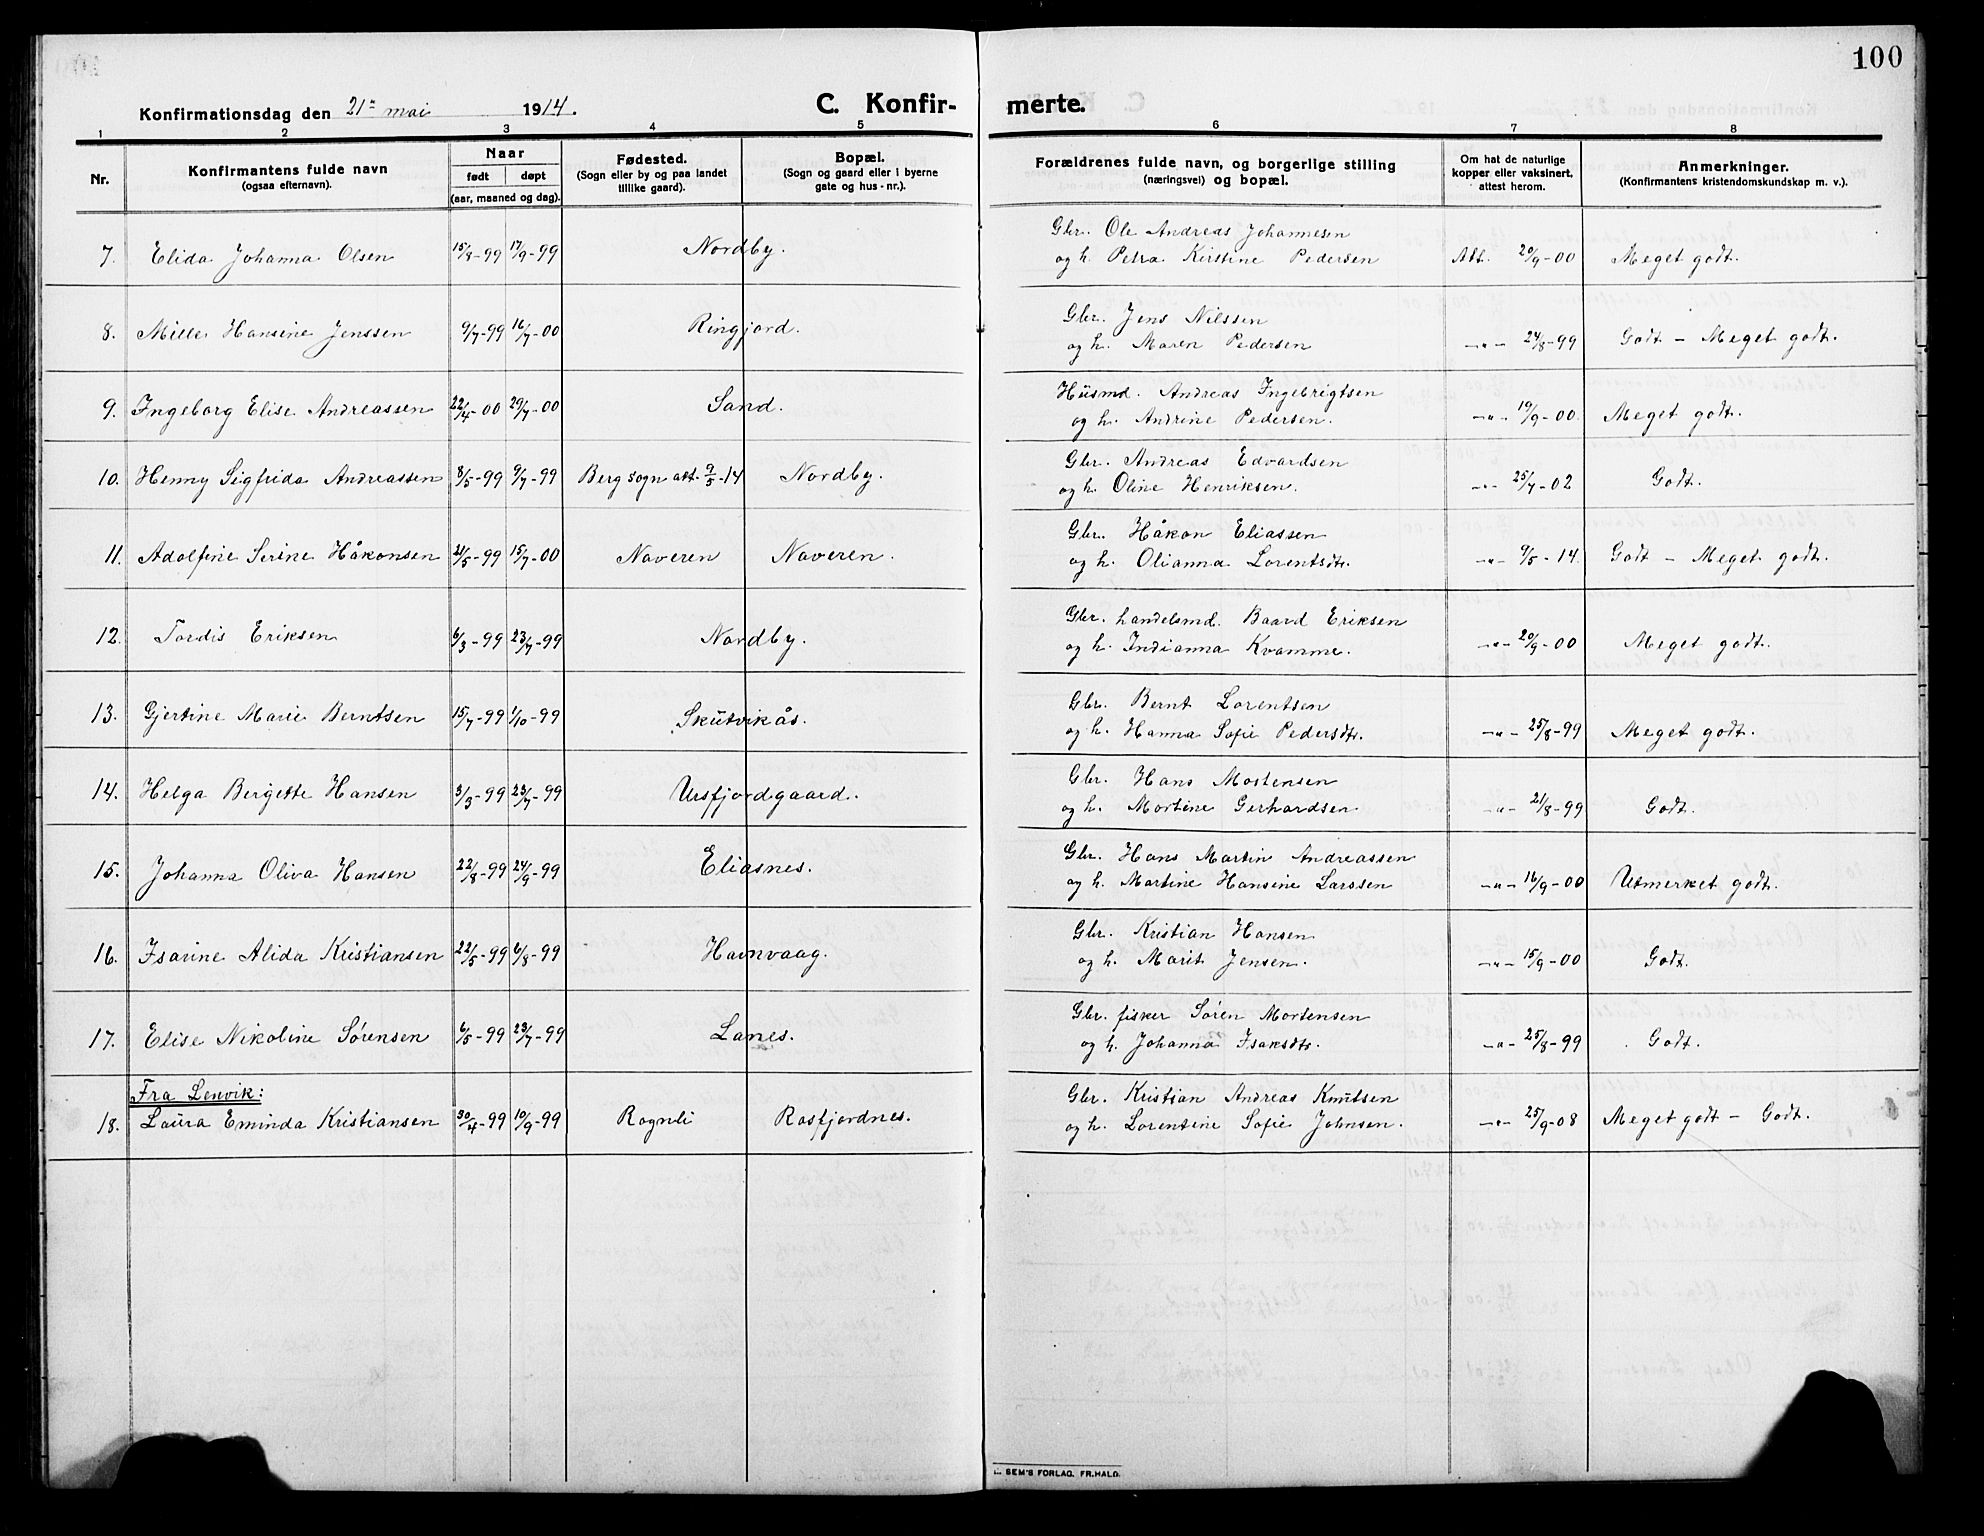 100
Konfirmationsdag den 21de mai 1914.
C. Konfir-
merte.
1 2 3 4 5 6 7 8
Nr.
Konfirmantens fulde navn
(ogsaa efternavn).
Naar
født døpt
(aar, maaned og dag).
Fødested.
(Sogn eller by og paa landet
tillike gaard).
Bopæl.
(Sogn og gaard eller i byerne
gate og hus-nr.).
Forældrenes fulde navn, og borgerlige stilling
(næringsvei) og bopæl.
Om hat de naturlige
kopper eller vaksinert,
attest herom.
Anmerkninger.
(Konfirmantens kristendomskundskap m. v.).
7. Elida Johanna Olsen 15/8-99 17/9-99 Nordby.
Gbr. Ole Andreas Johannesen
og h. Petra Kirstine Pedersen Att. 20/9-00 Meget godt.
8. Mille Hansine Jenssen 9/7-99 16/7-00 Ringjord.
Gbr. Jens Nilssen
og h. Maren Pedersen -"- 24/8-99 Godt - Meget godt.
9. Ingeborg Elise Andreassen 22/4-00 29/7-00 Sand.
Husmd. Andreas Ingebrigtsen
og h. Andrine Pedersen. -"- 19/9-00. Meget godt.
10. Henny Sigfrida Andreassen 8/5-99 9/7-99 Berg sogn att. 9/5-14 Nordby.
Gbr. Andreas Edvardsen
og h. Oline Henriksen. -"- 25/7-02 Godt.
11. Adolfine Serine Håkonsen 21/5-99 15/7-00 Naveren Naveren.
Gbr. Håkon Eliassen
og h. Olianna Lorentsdtr. -"- 9/5-14. Godt - Meget godt.
12. Tordis Eriksen 6/3-99 23/7-99 Nordby.
Gbr. handelsmd. Baard Eriksen
og h. Indianna Kvamme. -"- 20/9-00 Meget godt.
13. Gjertine Marie Berntsen 15/7-99 1/10-99 Skutvikås.
Gbr. Bernt Lorentsen
og h. Hanna Sofie Pedersdtr. -"- 25/8-99 Meget godt.
14. Helga Bergette Hansen 3/3-99 23/7-99 Ursfjordgaard.
Gbr. Hans Mortensen
og h. Mortine Gerhardsen -"- 21/8-99 Godt.
15. Johanna Oliva Hansen 22/8-99 24/9-99 Eliasnes.
Gbr. Hans Martin Andreassen
og h. Martine Hansine Larssen -"- 16/9-00 Utmerket godt.
16. Isarine Alida Kristiansen 22/5-99 6/8-99 Havnvaag.
Gbr. Kristian Hansen
og h. Marit Jensen. -"- 15/9-00 Godt.
17. Elise Nikoline Sørensen 6/5-99 23/7-99 Lanes.
Gbr. fisker Søren Mortensen
og h. Johanna Isaksdtr. -"- 25/8-99 Godt.
Fra Lenvik:
18. Laura Eminda Kristiansen 30/4-99 10/9-99 Rognli Rosfjordnes.
Gbr. Kristian Andreas Knutsen
og h. Lorentine Sofie Johnsen. -"- 25/9-08 Meget godt - Godt.
SEM'S FORLAG. FR.HALD.